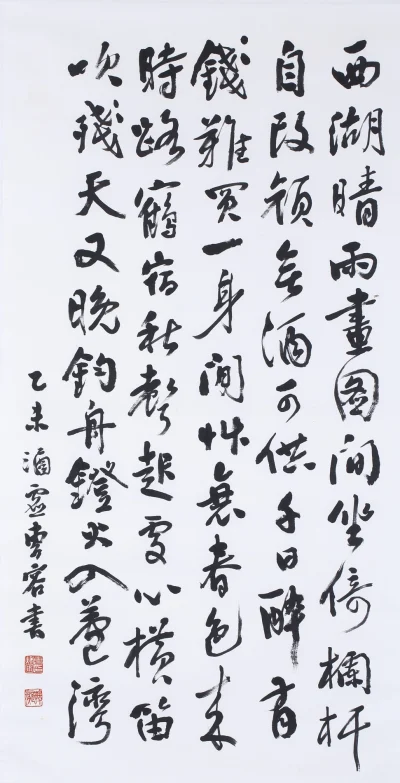 西湖晴雨畫圖間坐倚欄杆
自改顏無酒可供千日醉有
錢難買一身閒艸衰春色來
時路鶴宿秋聲起處山橫笛
吹殘天又晚釣舟鐙火入蘆灣
乙未澹廬曹容書